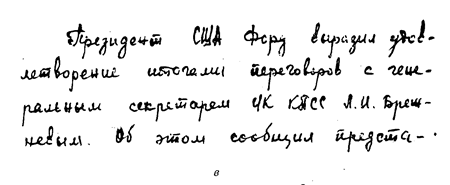 Президент США Форд выразил удов-
летворение итогами переговоров с гене-
ральным секретарем ЦК КПСС Л.И. Бреж-
невым. Об этом сообщил предста-
в